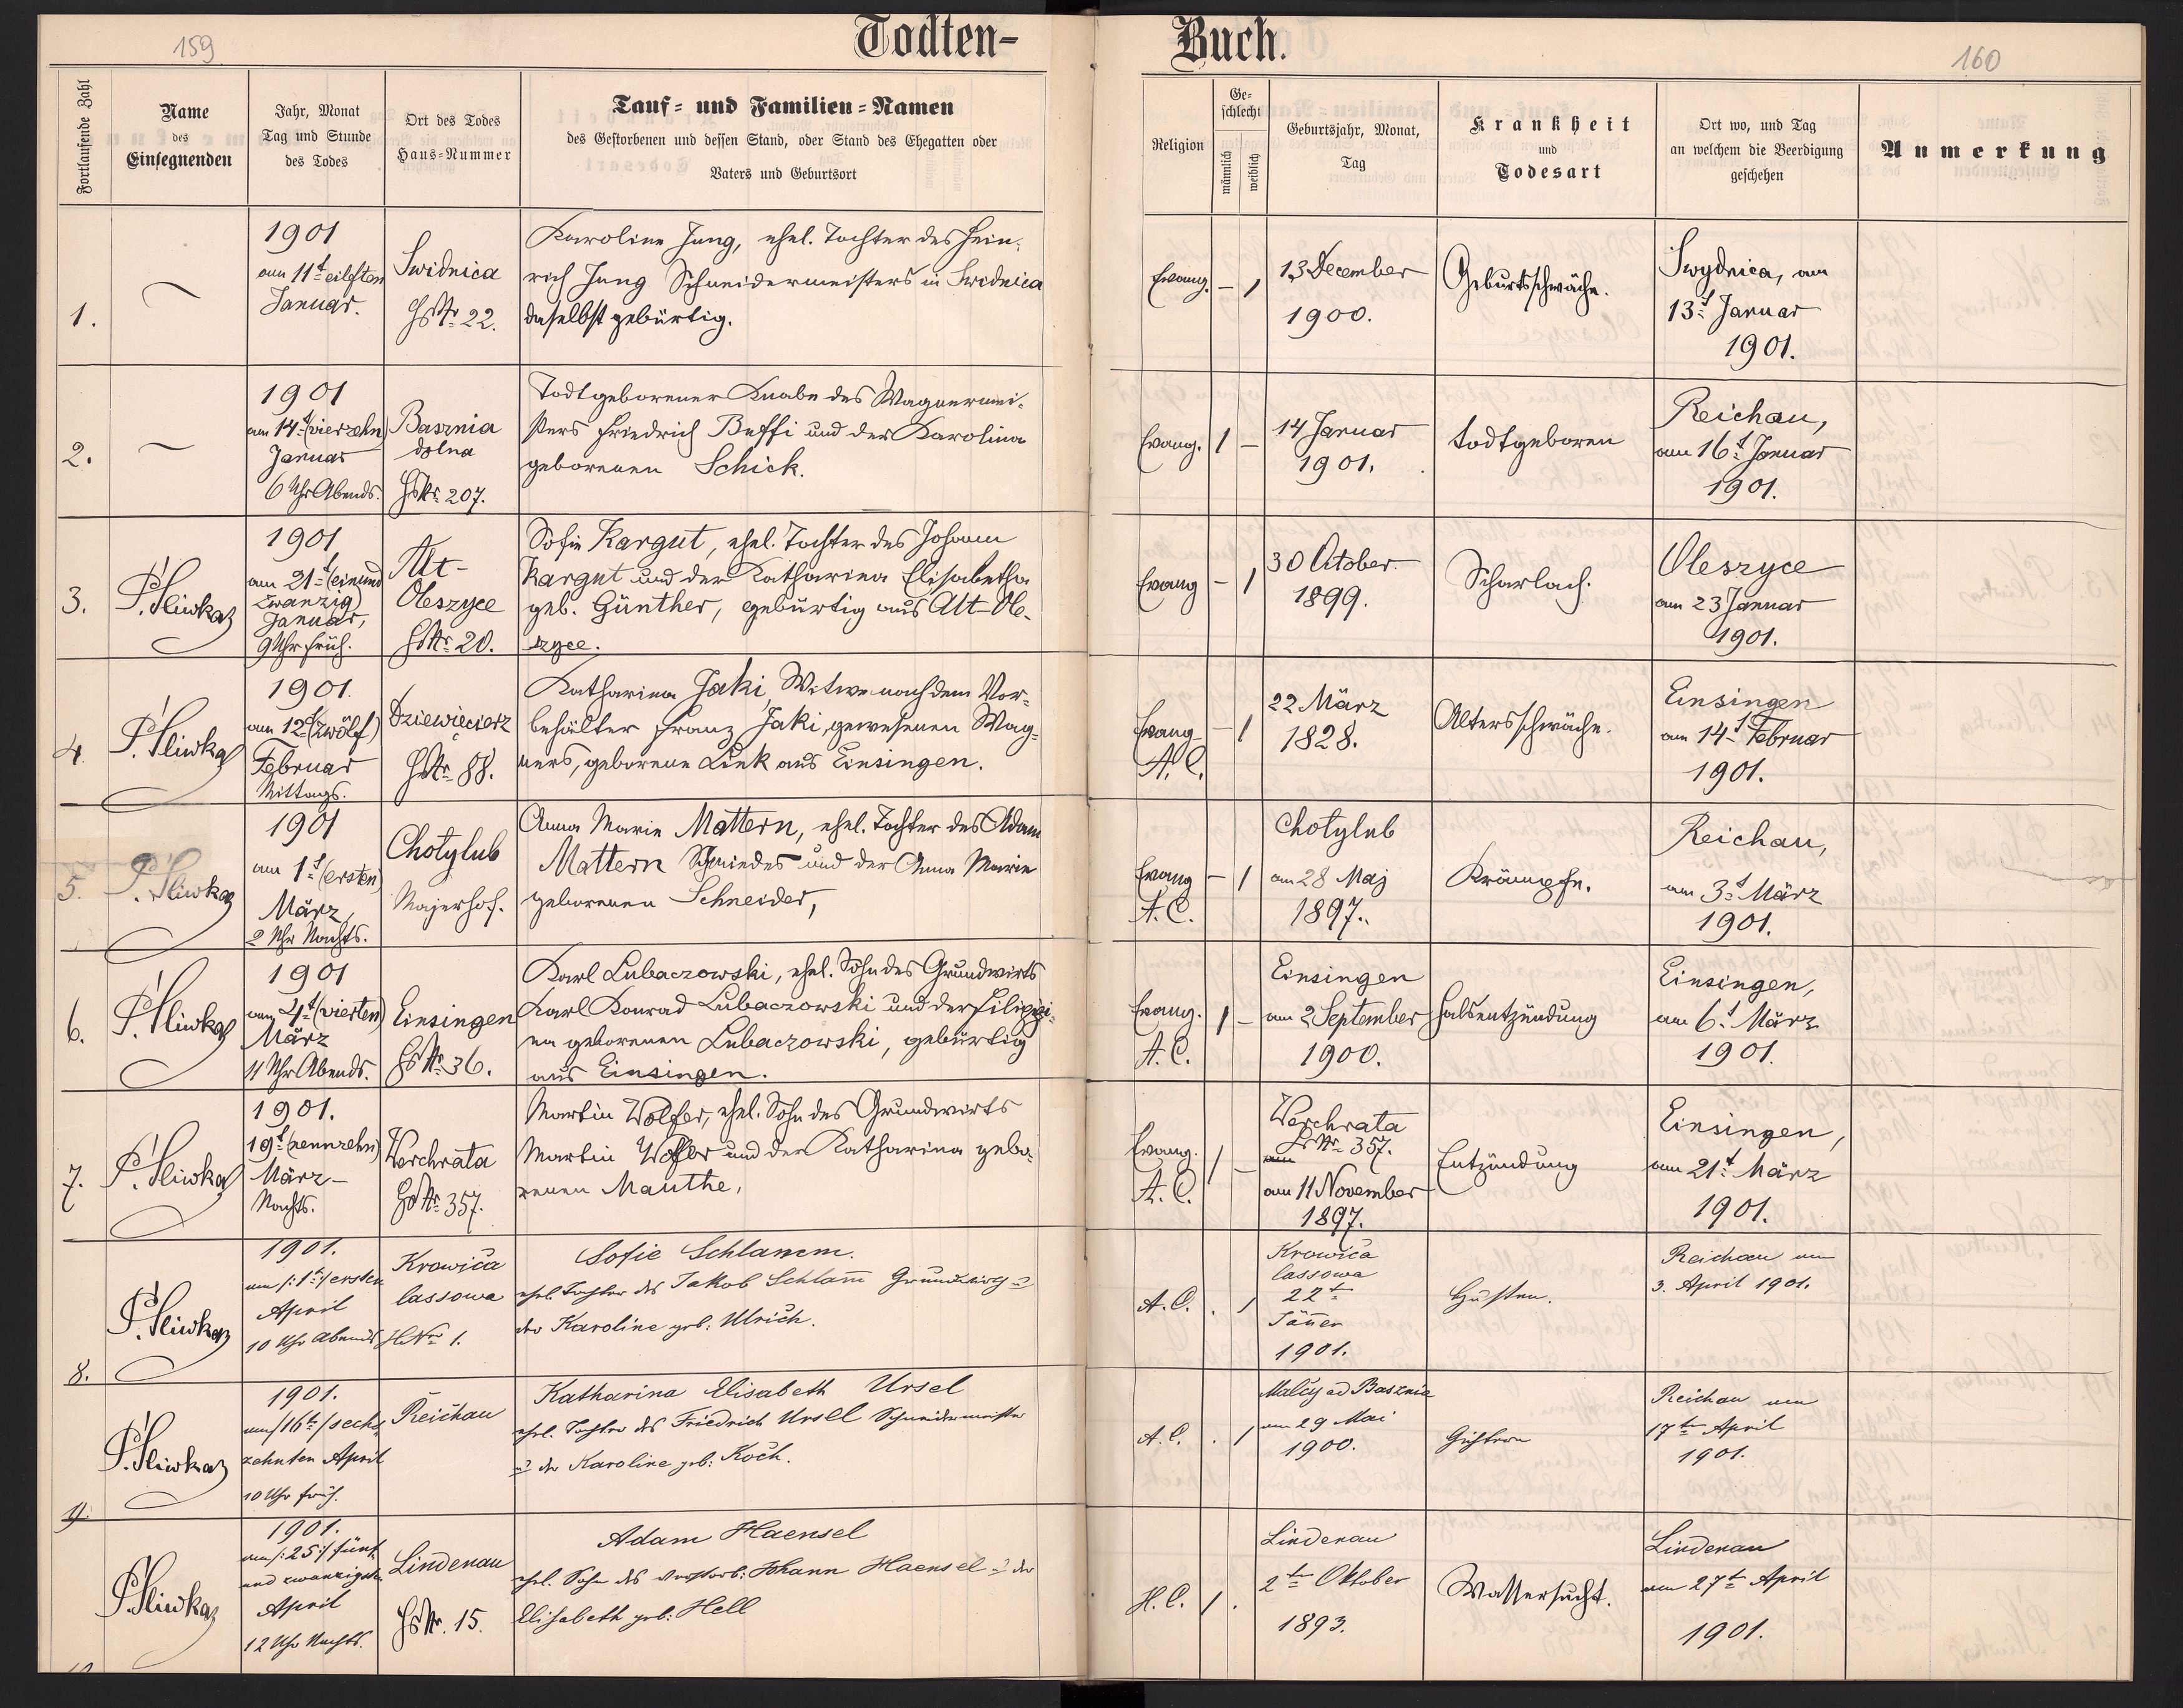 159
Todten-
Buch.
160
Fortlaufende Zahl
Name
des
Einsegnenden
Jahr, Monat
Tag und Stunde
des Todes
Ort des Todes
Haus-Nummer
Tauf- und Familien-Namen
des Gestorbenen und dessen Stand, oder Stand des Ehegatten oder
Vaters und Geburtsort
Religion
Ge-
schlecht
männlich
weiblich
Geburtsjahr, Monat,
Tag
Krankheit
und
Todesart
Ort wo, und Tag
an welchem die Beerdigung
geschehen
Anmerkung
1.
1901
am 11t eilften
Januar.
Swidnica
HsNr. 22.
Karoline Jung, ehel. Tochter des Hein-
rich Jung Schneidermeisters in Swidnica
daselbst gebürtig.
Evang. – 1
13 December
1900.
Geburtsschwäche.
Swydnica, am
13t Januar
1901.
2.
1901
am 14t (vierzehn)
Januar
6 Uhr Abends.
Basznia
dolna
HsNr. 207.
Todtgeborener Knabe des Wagnermei-
sters Friedrich Buffi und der Karolina
geborenen Schick.
Evang. 1 –
14 Januar
1901.
todtgeboren
Reichau,
am 16t Januar
1901.
3.
P. Sliwka
1901
am 21t (einund
zwanzig)
Januar,
9 Uhr früh.
Alt-
Oleszyce
HsNr. 20.
Sofie Kargut, ehel. Tochter des Johann
Kargut und der Katharina Elisabetha
geb. Günther, gebürtig aus Alt-Ole-
szyce.
Evang – 1
30 October
1899.
Scharlach.
Oleszyce
am 23 Januar
1901.
4.
P. Sliwka
1901.
am 12t (zwölf)
Februar
Mittags.
Dziewięcierz
HsNr. 88.
Katharina Jaki, Witwe nach dem Vor-
behälter Franz Jaki, gewesenen Wag-
ners, geborene Link aus Einsingen.
Evang – 1
A. C.
22 März
1828.
Altersschwäche.
Einsingen
am 14t Februar
1901.
5.
P. Sliwka
1901
am 1t (ersten)
März,
2 Uhr Nachts.
Chotylub
Majerhof.
Anna Marie Mattern, ehel. Tochter des Adam
Mattern Schmiedes und der Anna Marie
geborenen Schneider,
Evang – 1
A. C.
Chotylub
am 28 Maj
1897.
Krämpfe.
Reichau,
am 3t März
1901.
6.
P. Sliwka
1901
am 4t (vierten)
März
11 Uhr Abends.
Einsingen
HsNr. 36.
Karl Lubaczowski, ehel. Sohn des Grundwirts
Karl Konrad Lubaczowski und der Filippi-
na geborenen Lubaczowski, gebürtig
aus Einsingen.
Evang. 1 –
A. C.
Einsingen
am 2 September
1900.
Halsentzündung
Einsingen,
am 6t März
1901.
7.
P. Sliwka
1901.
19t (neunzehn)
März
Nachts.
Werchrata
HsNr. 357.
Martin Wolfer, ehel. Sohn des Grundwirts
Martin Wolfer und der Katharina gebo-
renen Mauthe,
Evang. 1 –
A. C.
Werchrata
HsNr. 357.
am
am 11 November
1897.
Entzündung
Einsingen,
am 21t März
1901.
8.
P. Sliwka
1901.
am /:1t:/ ersten
April
10 Uhr Abends
Krowica
lassowa
HNr 1.
Sofie Schlamm.
ehel. Tochter des Jakob Schlam̄ Grundwirts u
der Karoline geb: Ulrich.
A. C. . 1
Krowica
lassowa
22t
Jän̄er
1901.
Husten.
Reichau am
3. April 1901.
9.
P. Sliwka
1901.
am /16t/ sech
zehnten April
10 Uhr früh.
Reichau
Katharina Elisabeth Ursel
ehel. Tochter des Friedrich Ursel Schneidermeister
u der Karoline geb: Koch.
A. C. . 1
Malcy ad Basznia
am 29 Mai
1900.
Reichau am
17te April
1901.
P. Sliwka
1901.
am /:25:/ fünf
und zwanzigsten
April
12 Uhr Nachts.
Lindenau
HsNr. 15.
Adam Haensel
ehel. Sohn des verstorb: Johann Haensel u der
Elisabeth geb: Hell
H. C. 1 .
Lindenau
2te Oktober
1893.
Wassersucht.
Lindenau
am 27te April
1901.